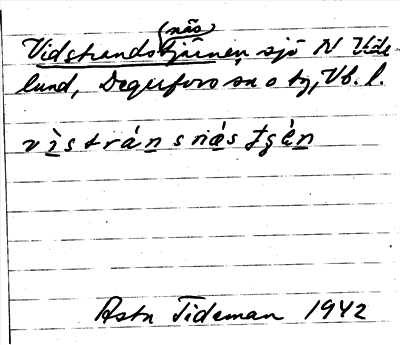 (näs)
Vidstrandstjärnen sjö N Vide
lund, Degerfors sn o tg, Vb. l.
vìstránsnä̀stjɛ̀n
Asta Tideman 1942